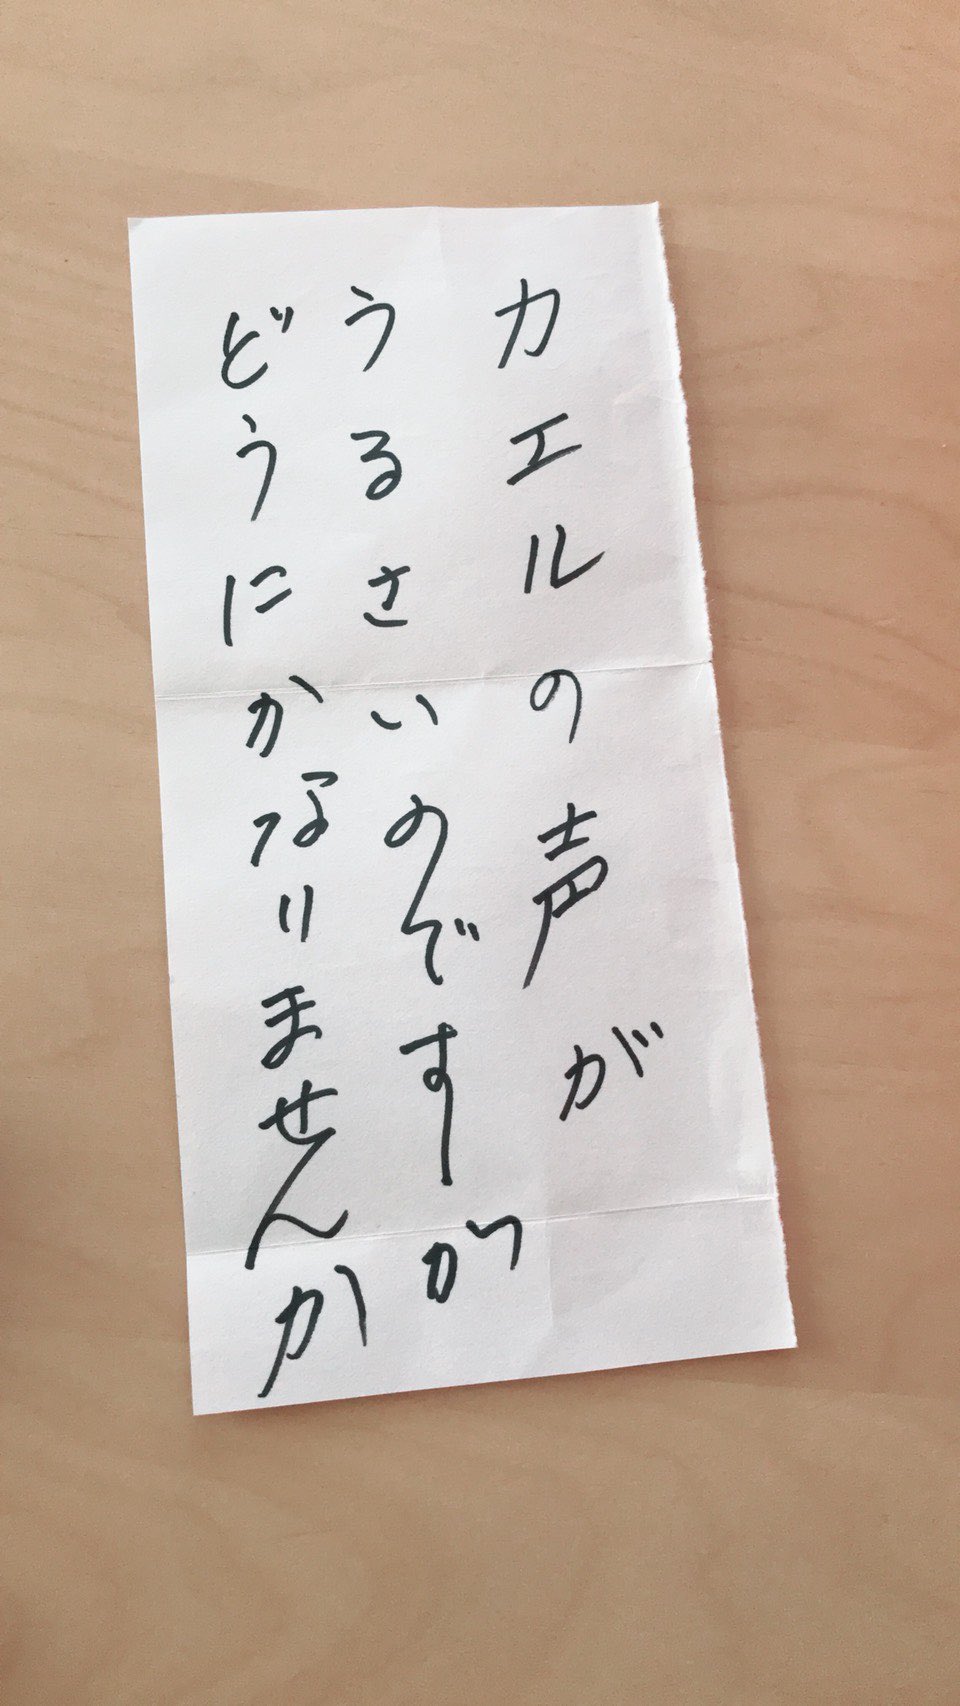 カエルの声が
うるさいのですが
どうにかなりませんか